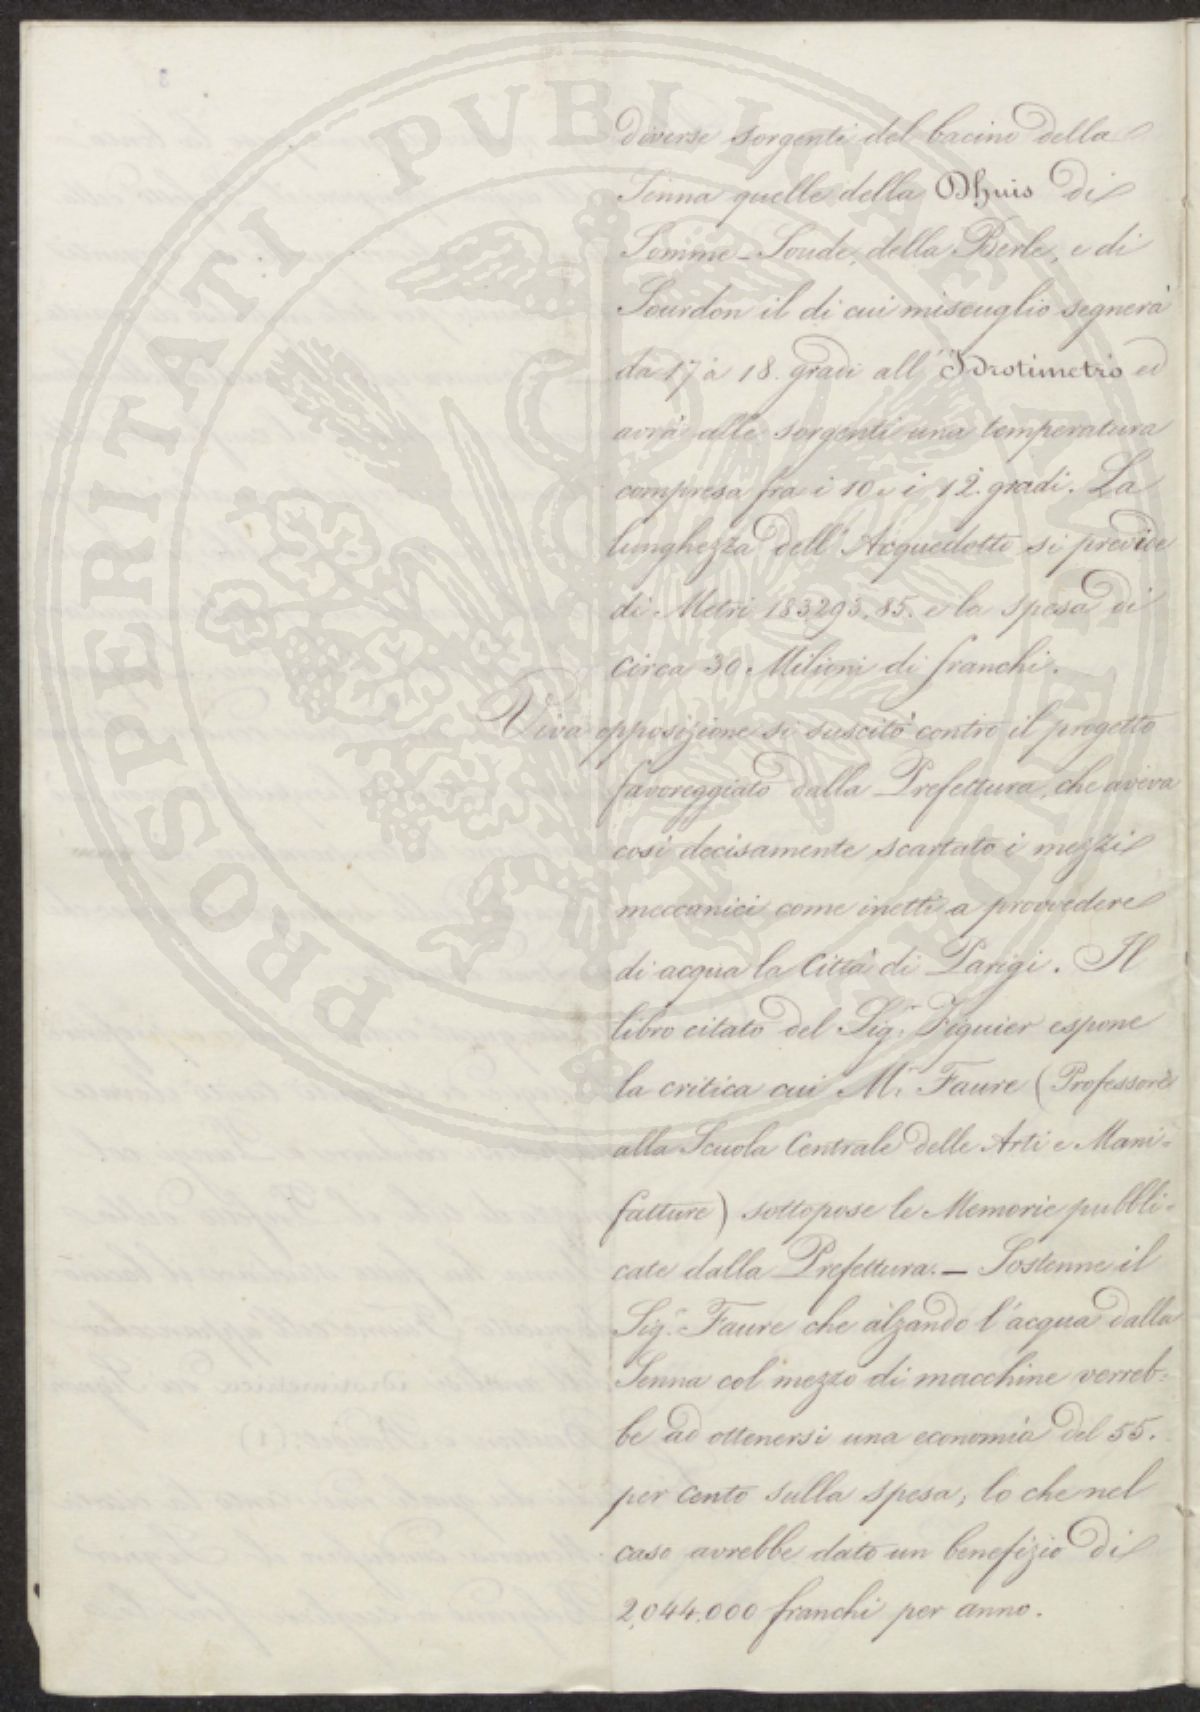 diverse sorgenti del bacino della
Senna quelle della Dhuis di
Somme-Soude, della Berle, e di
Sourdon il di cui miscuglio segnerà
da 17 a 18. gradi all'Idrotimetro ed
avrà alle sorgenti una temperatura
compresa fra i 10 e i 12. gradi. La
lunghezza dell'Acquedotto si previde
di Metri 183293.85. e la spesa di
circa 30 Milioni di franchi.
Viva opposizione si suscitò contro il progetto
favoreggiato dalla Prefettura, che aveva
così decisamente scartato i mezzi
meccanici come inetti a provvedere
di acqua la Città di Parigi. Il
libro citato del Sig.r Figuier espone
la critica cui M.r Faure (Professore
alla Scuola Centrale delle Arti e Mani=
fatture) sottopose le Memorie pubbli=
cate dalla Prefettura. — Sostenne il
Sig.r Faure che alzando l'acqua dalla
Senna col mezzo di macchine verreb=
be ad ottenersi una economia del 55.
per cento sulla spesa, lo che nel
caso avrebbe dato un benefizio di
2,044.000 franchi per anno.
PROSPERITATI PVBLICAE AVGENDAE